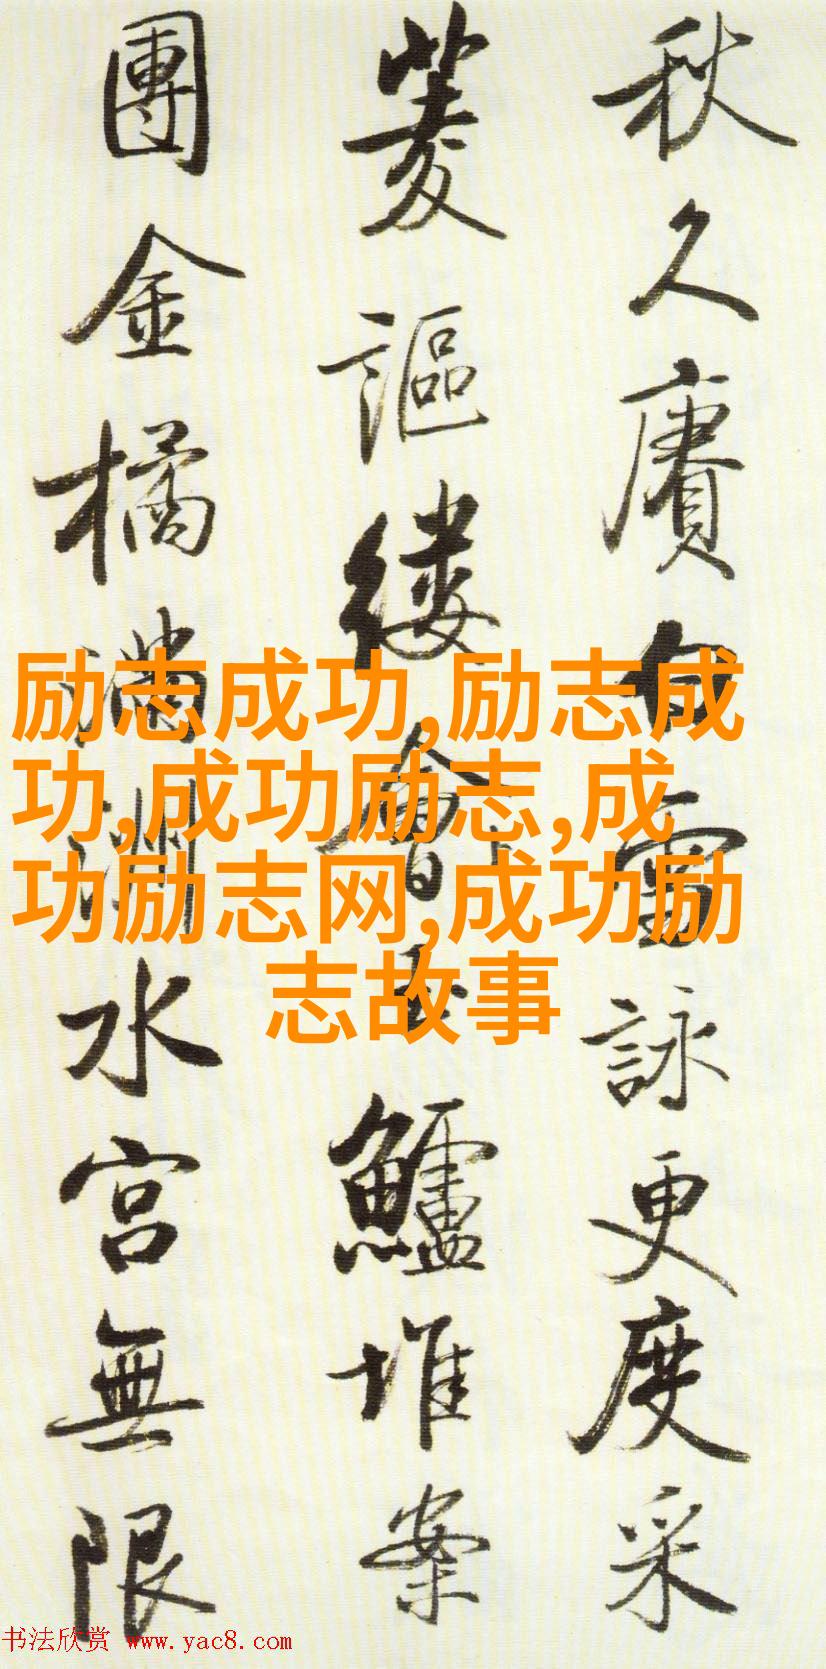 秋久賡白雪詠更度采
菱謳縷會玉鱸堆案
團金橘滿洲水宮無限
励志成功,励志成
功,成功励志,成
功励志网,成功励
志故事
书法欣赏 www.yac8.com